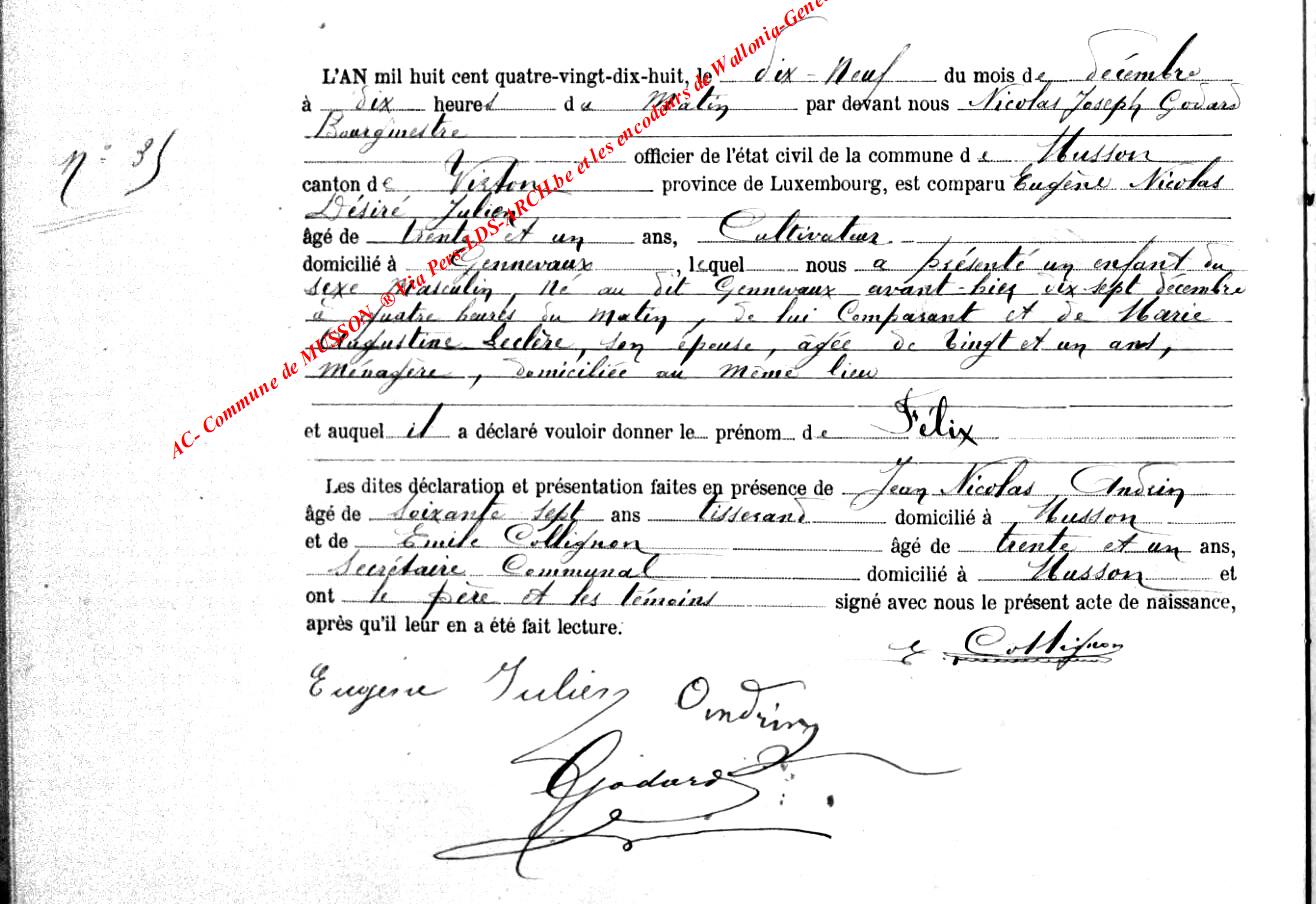 L'AN mil huit cent quatre-vingt-dix-huit, le dix-Neuf du mois de décembre
à dix heures du Matin par devant nous Nicolas Joseph Godard
Bourgmestre
N° 35
officier de l'état civil de la commune de Musson
canton de Virton province de Luxembourg, est comparu Eugène Nicolas
Désiré Julien
âgé de trente et un ans, Cultivateur
domicilié à Gennevaux, lequel nous a présenté un enfant du
sexe Masculin, Né au dit Gennevaux avant-hier dix sept décembre
à quatre heures du matin, de lui Comparant et de Marie
Augustine Leclère, son épouse, agée de Vingt et un ans,
Ménagère, domiciliée au même lieu
et auquel il a déclaré vouloir donner le prénom de Félix
Les dites déclaration et présentation faites en présence de Jean Nicolas Andrin
âgé de Soixante sept ans tisserand domicilié à Musson
et de Emile Collignon âgé de trente et un ans,
Secrétaire Communal domicilié à Musson et
ont le père et les témoins signé avec nous le présent acte de naissance,
après qu'il leur en a été fait lecture.
E Collignon
Eugene Julien Andrin
Godard
AC- Commune de MUSSON ® Via Pers-LDS-ARCH.be et les encodeurs de Wallonia-Gene